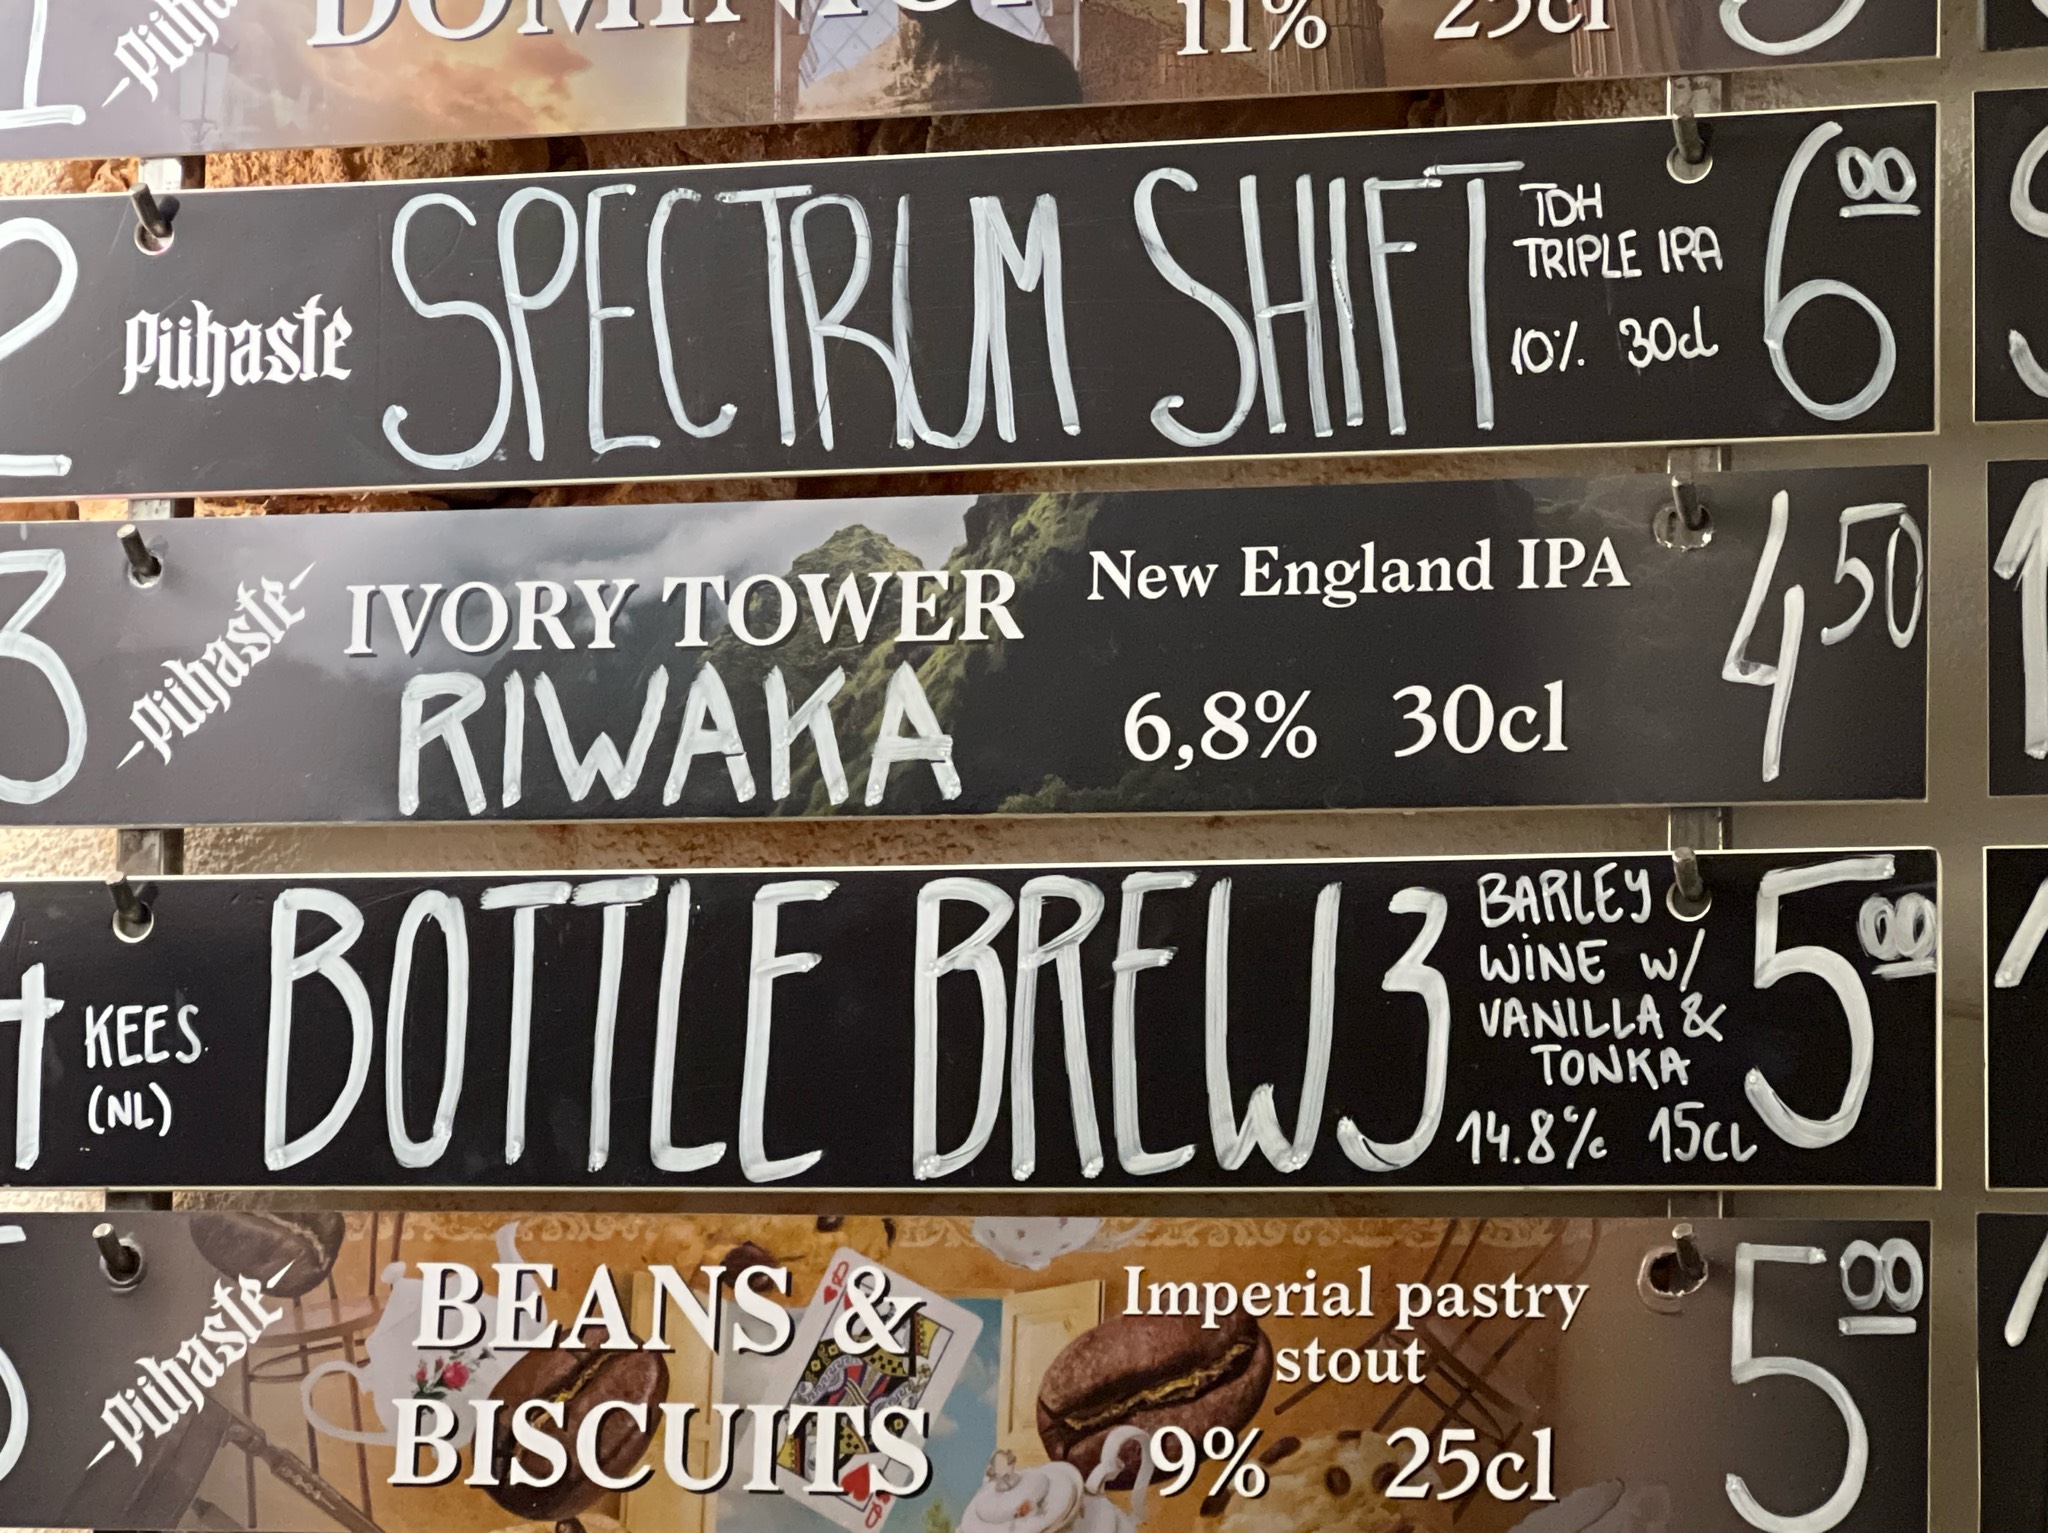 1 Pühaste DOMINION 11% 25cl
2 Pühaste SPECTRUM SHIFT 6 00
TDH
TRIPLE IPA
10% 30cl
3 Pühaste IVORY TOWER
RIWAKA
New England IPA
6,8% 30cl
4 50
4 KEES
(NL)
BOTTLE BREW 3
BARLEY
WINE W/
VANILLA &
TONKA
14.8% 15CL
5 00
5 Pühaste BEANS &
BISCUITS
Imperial pastry
stout
9% 25cl
5 00